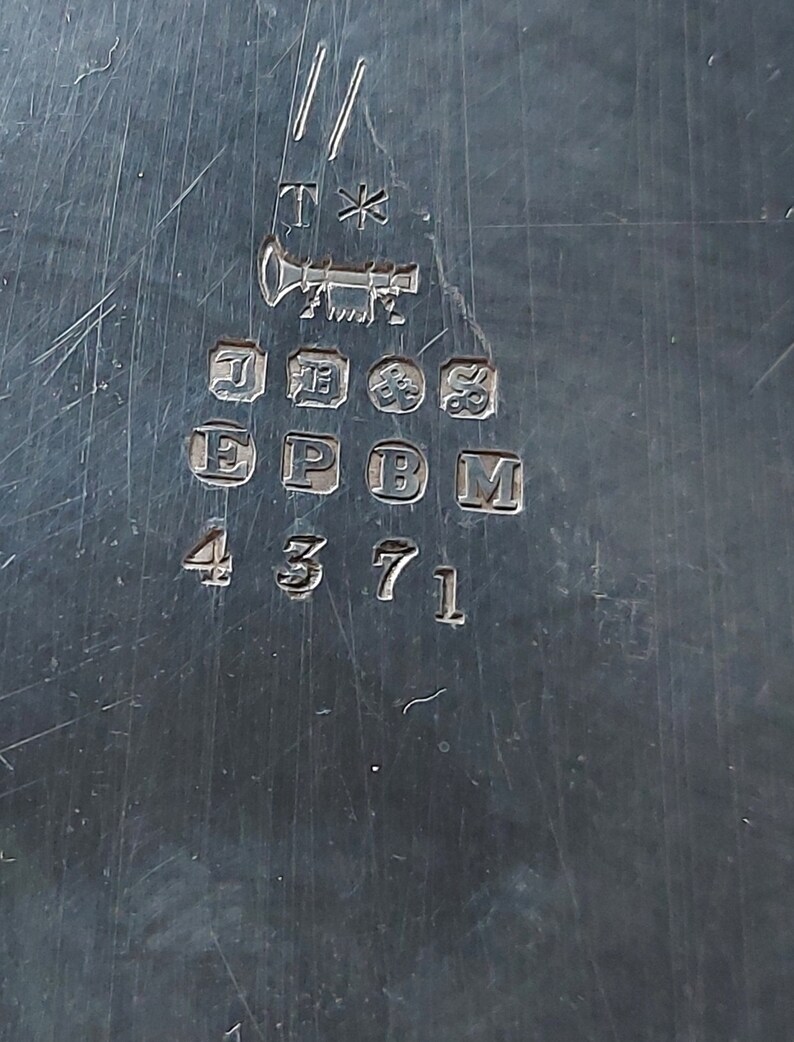 T *
J B & S
E P B M
4 3 7 1